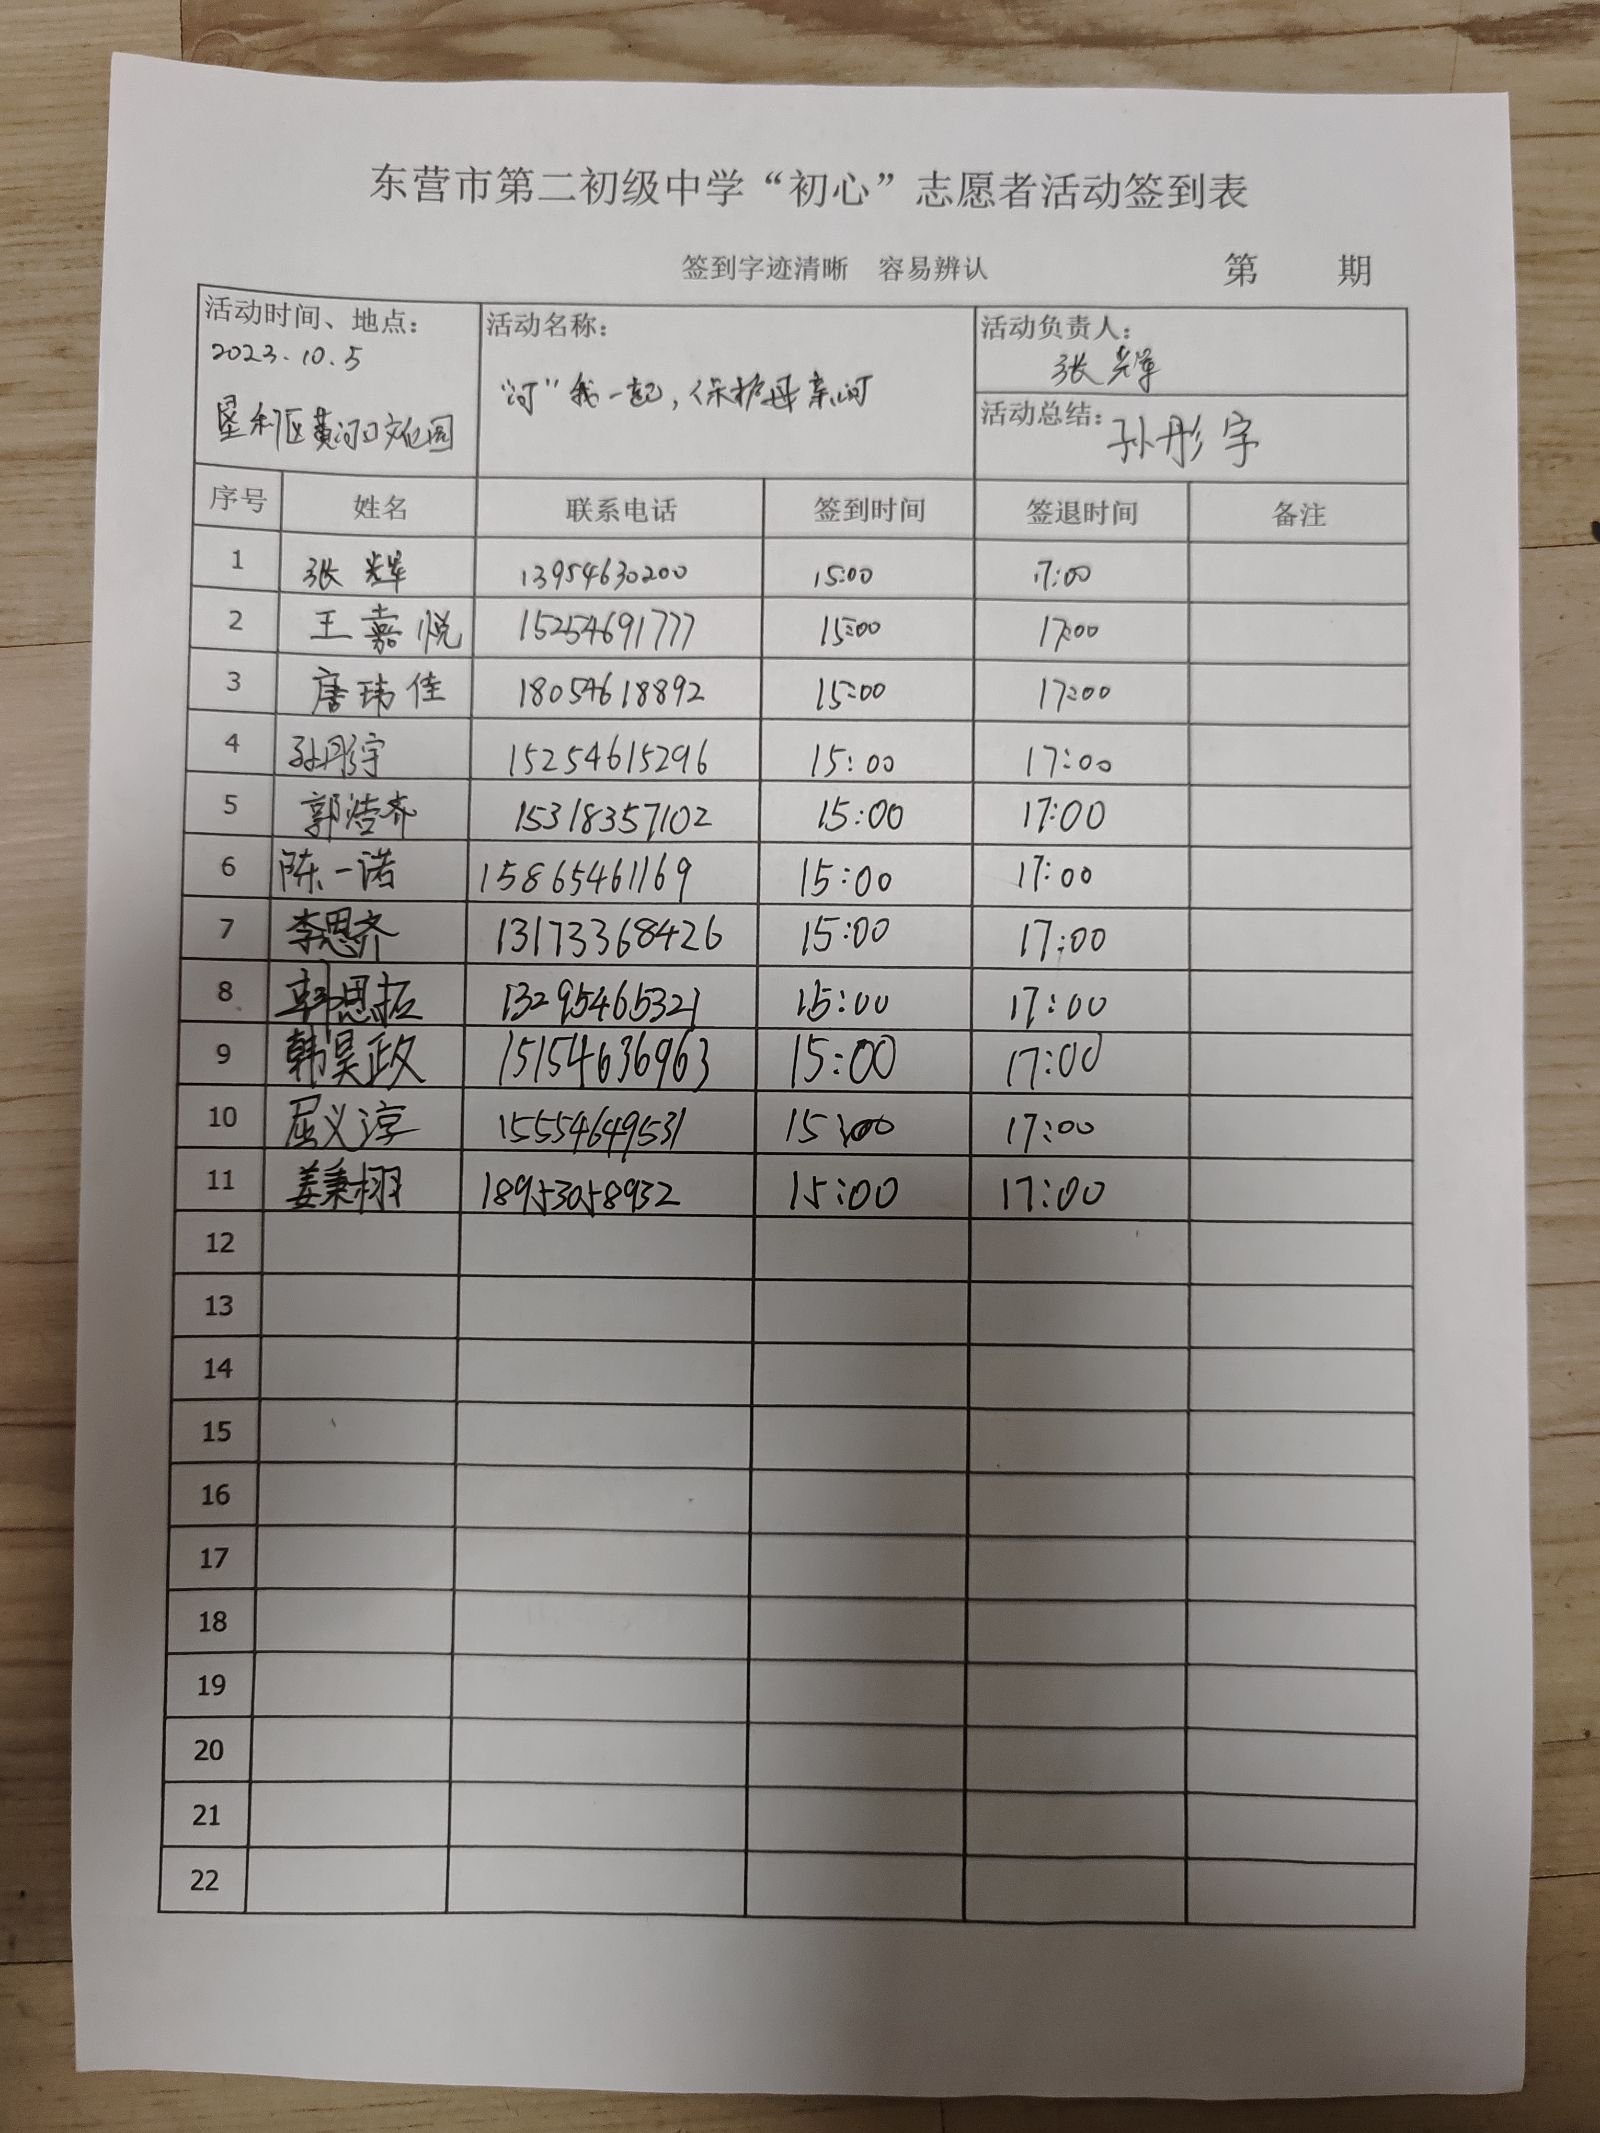 东营市第二初级中学“初心”志愿者活动签到表
签到字迹清晰 容易辨认 第 期
活动时间、地点：
2023.10.5
垦利区黄河口文化园
活动名称：
“河”我一起，保护母亲河
活动负责人：
张辉
活动总结：孙彤宇
序号 姓名 联系电话 签到时间 签退时间 备注
1 张辉 13954630200 15:00 17:00
2 王嘉悦 15254691777 15:00 17:00
3 唐玮佳 18054618892 15:00 17:00
4 孙彤宇 15254615296 15:00 17:00
5 郭浩齐 15318357102 15:00 17:00
6 陈一诺 15865461169 15:00 17:00
7 李思齐 13173368426 15:00 17:00
8 韩思拓 13295465321 15:00 17:00
9 韩昊政 15154636963 15:00 17:00
10 屈义淳 15554649531 15:00 17:00
11 姜秉栩 18953058932 15:00 17:00
12
13
14
15
16
17
18
19
20
21
22